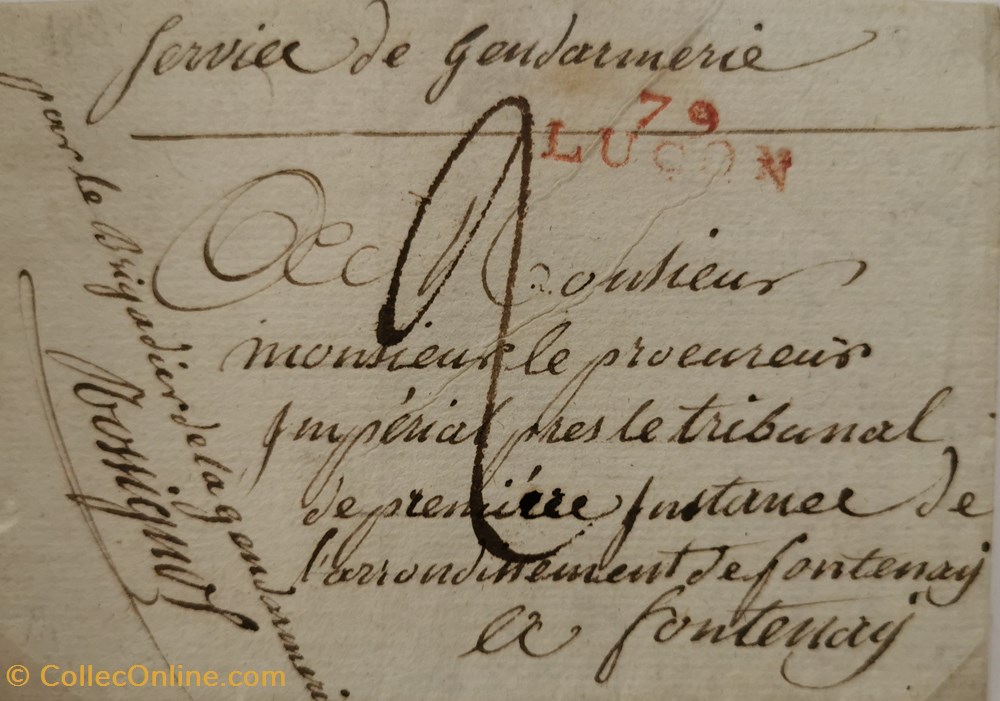 Service de Gendarmerie
79
LUÇON
A Monsieur
monsieur le procureur
Impérial pres le tribunal
de premiére Instance de
l'arrondissement de fontenay
a fontenay
2
pour le Brigadier de la gendarmeri
© CollecOnline.com